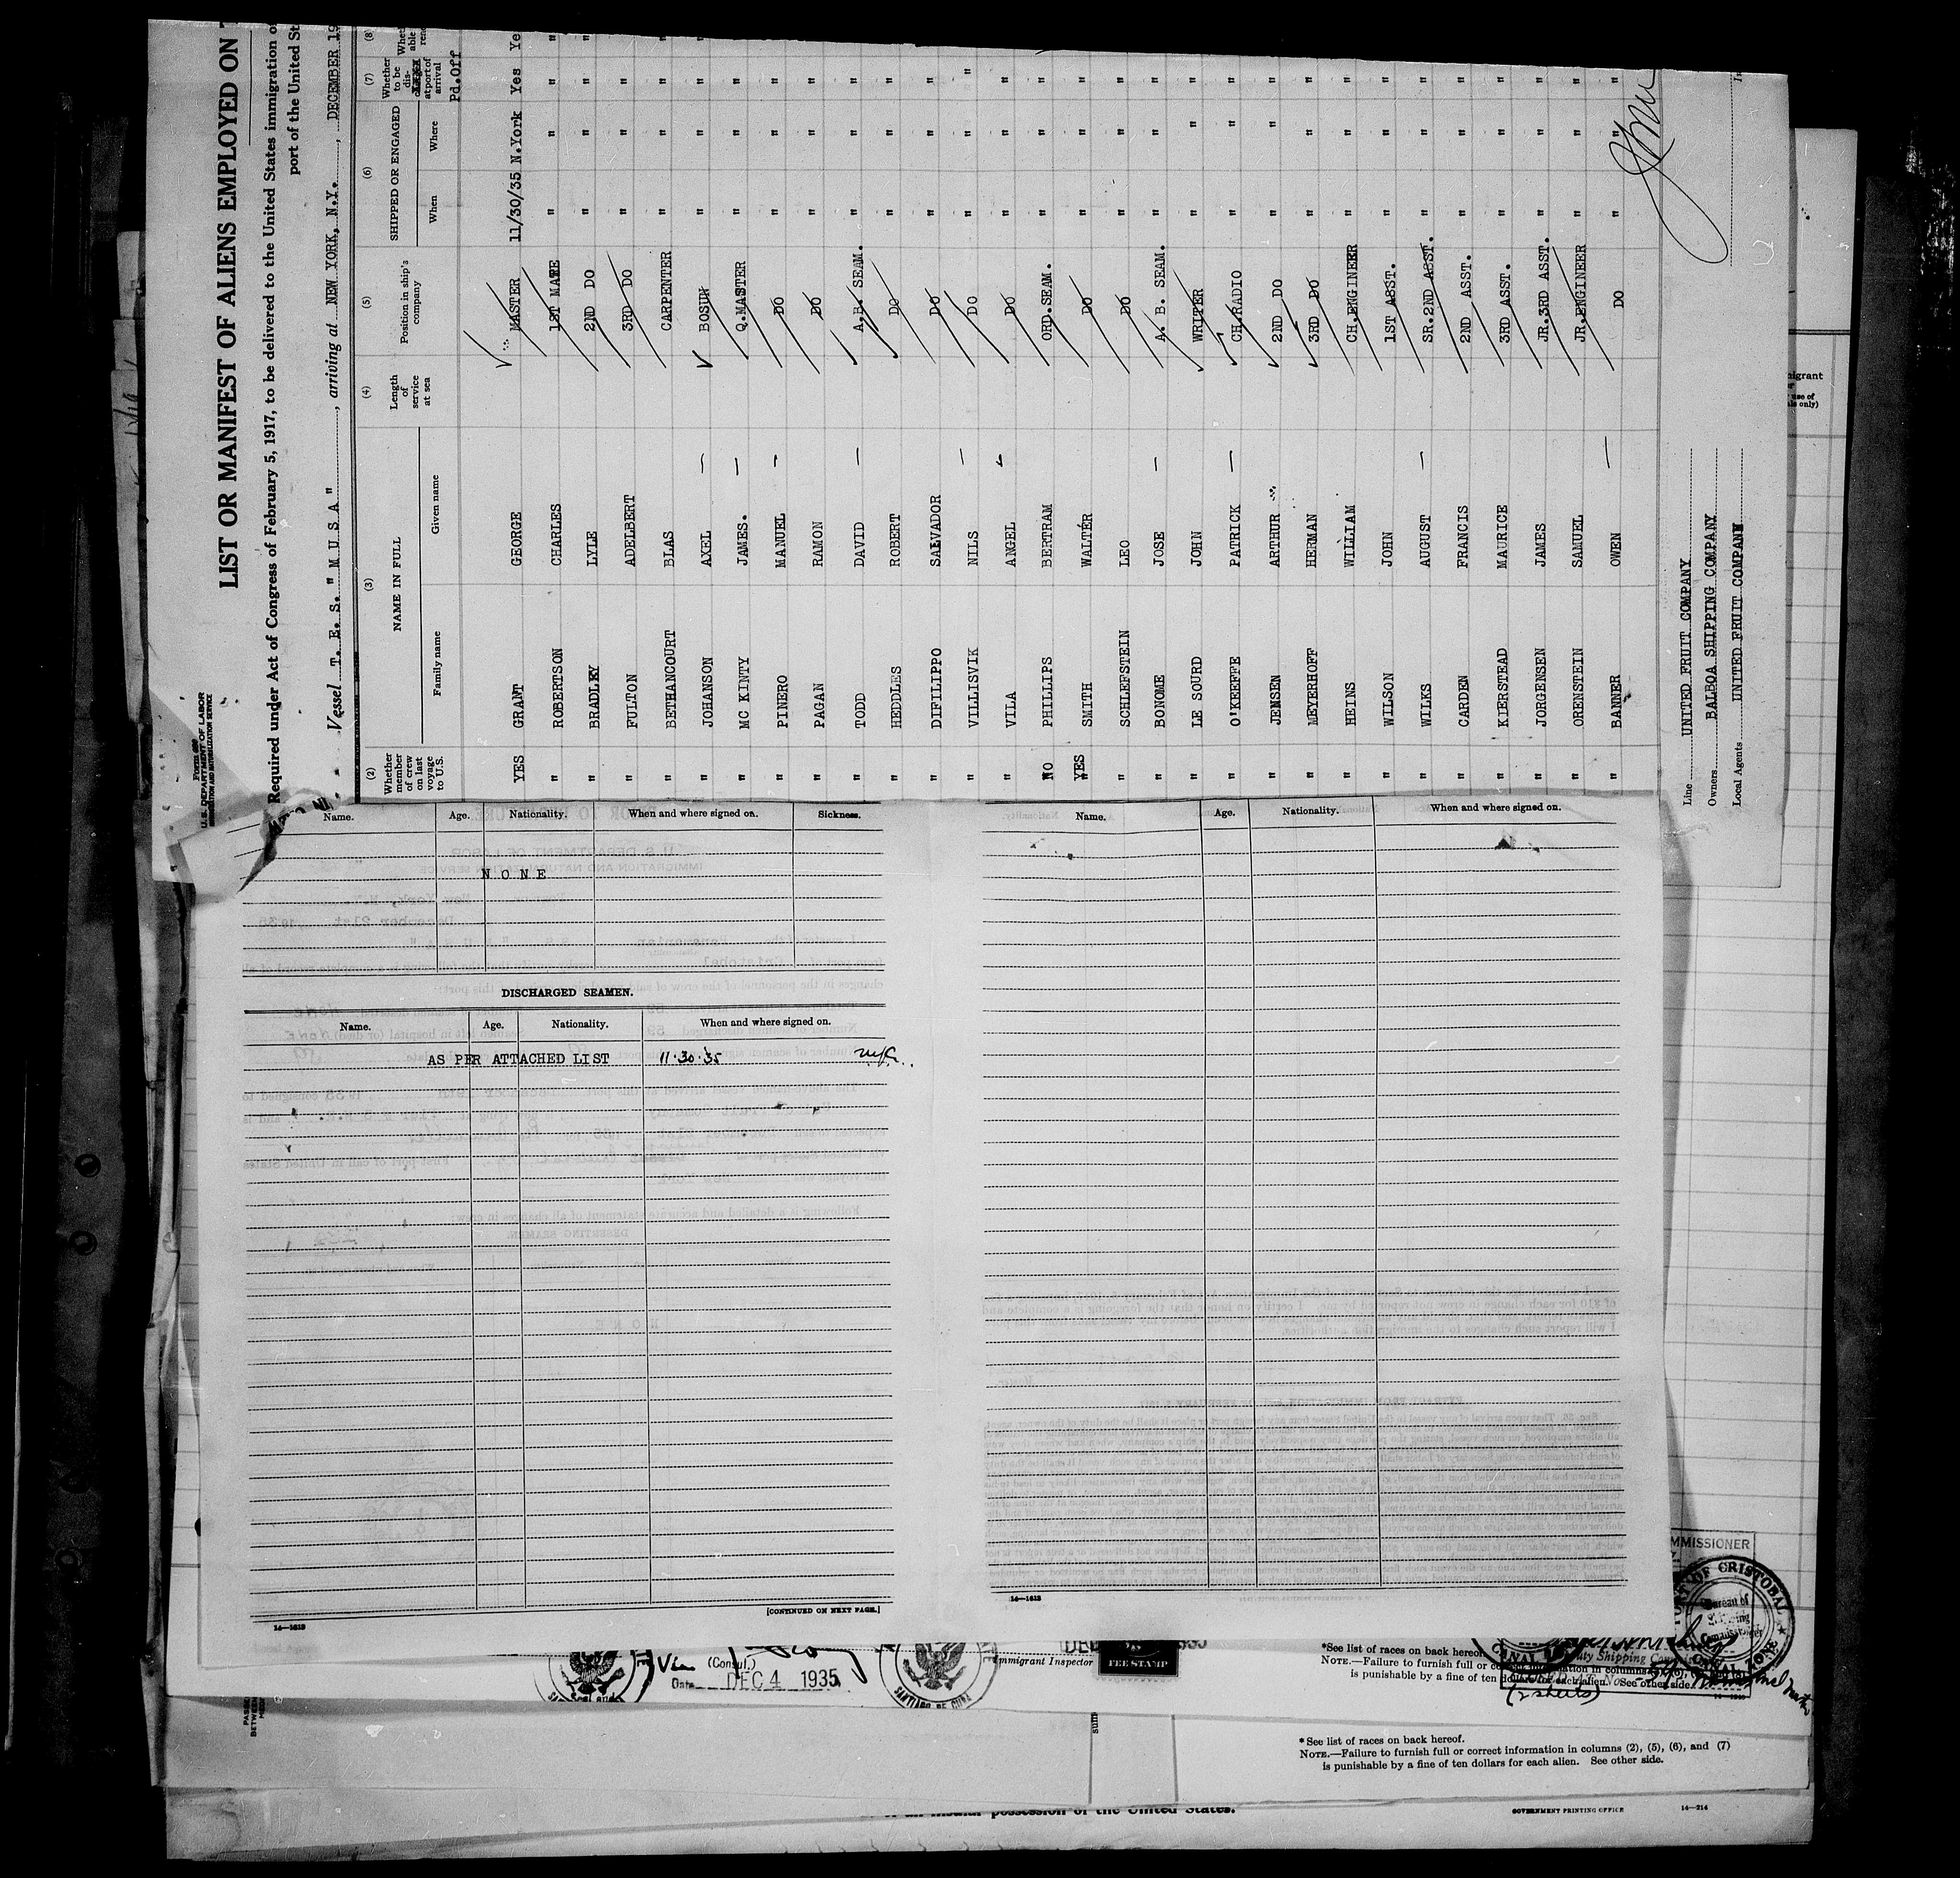 Form 689
U. S. DEPARTMENT OF LABOR
IMMIGRATION AND NATURALIZATION SERVICE
LIST OR MANIFEST OF ALIENS EMPLOYED ON
Required under Act of Congress of February 5, 1917, to be delivered to the United States immigration
port of the United St
Vessel T. E. S. " M U S A ", arriving at NEW YORK, N.Y., DECEMBER 19
(2) (3) (4) (5) (6) (7) (8)
Whether member of crew on last voyage to U.S. NAME IN FULL Length of service at sea Position in ship's company SHIPPED OR ENGAGED Whether to be dis- at port of arrival
Family name Given name When Where
Pd.Off
YES GRANT GEORGE MASTER 11/30/35 N.York Yes Ye
" ROBERTSON CHARLES 1ST MATE " " " "
" BRADLEY LYLE 2ND DO " " " "
" FULTON ADELBERT 3RD DO " " "
" BETHANCOURT BLAS CARPENTER " " " "
" JOHANSON AXEL — BOSUN " " " "
" MC KINTY JAMES. — Q.MASTER " " "
" PINERO MANUEL — DO " " "
" PAGAN RAMON DO " " "
" TODD DAVID — A.B. SEAM. " " "
" HEDDLES ROBERT DO " " "
" DIFILIPPO SALVADOR DO " " "
" VILLISVIK NILS — DO " " "
" VILA ANGEL DO " " "
NO PHILLIPS BERTRAM ORD.SEAM. " " "
YES SMITH WALTER DO " " "
" SCHLEFSTEIN LEO DO " " "
" BONOME JOSE — A. B. SEAM. " " "
" LE SOURD JOHN WRITER " " "
" O'KEEFFE PATRICK — CH.RADIO " " "
" JENSEN ARTHUR 2ND DO " " "
" MEYERHOFF HERMAN 3RD DO " " "
" HEINS WILLIAM CH.ENGINEER " " "
" WILSON JOHN 1ST ASST. " " "
" WILKS AUGUST — SR.2ND ASST. " " "
" CARDEN FRANCIS 2ND ASST. " " "
" KIERSTEAD MAURICE 3RD ASST. " " "
" JORGENSEN JAMES JR.3RD ASST. " " "
" ORENSTEIN SAMUEL JR.ENGINEER " " "
" BANNER OWEN — DO " " "
Line UNITED FRUIT COMPANY
Owners BALBOA SHIPPING COMPANY
Local Agents UNITED FRUIT COMPANY
Name. Age. Nationality. When and where signed on. Sickness.
N O N E
DISCHARGED SEAMEN.
Name. Age. Nationality. When and where signed on.
AS PER ATTACHED LIST 11·30·35
[CONTINUED ON NEXT PAGE.]
14—1613
Name. Age. Nationality. When and where signed on.
14—1613
(Consul.)
Date DEC 4 1935
SANTIAGO DE CUBA
Immigrant Inspector
FEE STAMP
MMISSIONER
PORT OF CRISTOBAL
Bureau of
Shipping
Commissioner
CANAL ZONE
Deputy Shipping
*See list of races on back hereof.
NOTE.—Failure to furnish full or correct information in columns
is punishable by a fine of ten dollars for each alien. See other side.
(2 sheets)
*See list of races on back hereof.
NOTE.—Failure to furnish full or correct information in columns (2), (5), (6), and (7)
is punishable by a fine of ten dollars for each alien. See other side.
an insular possession of the United States.
GOVERNMENT PRINTING OFFICE 14—214